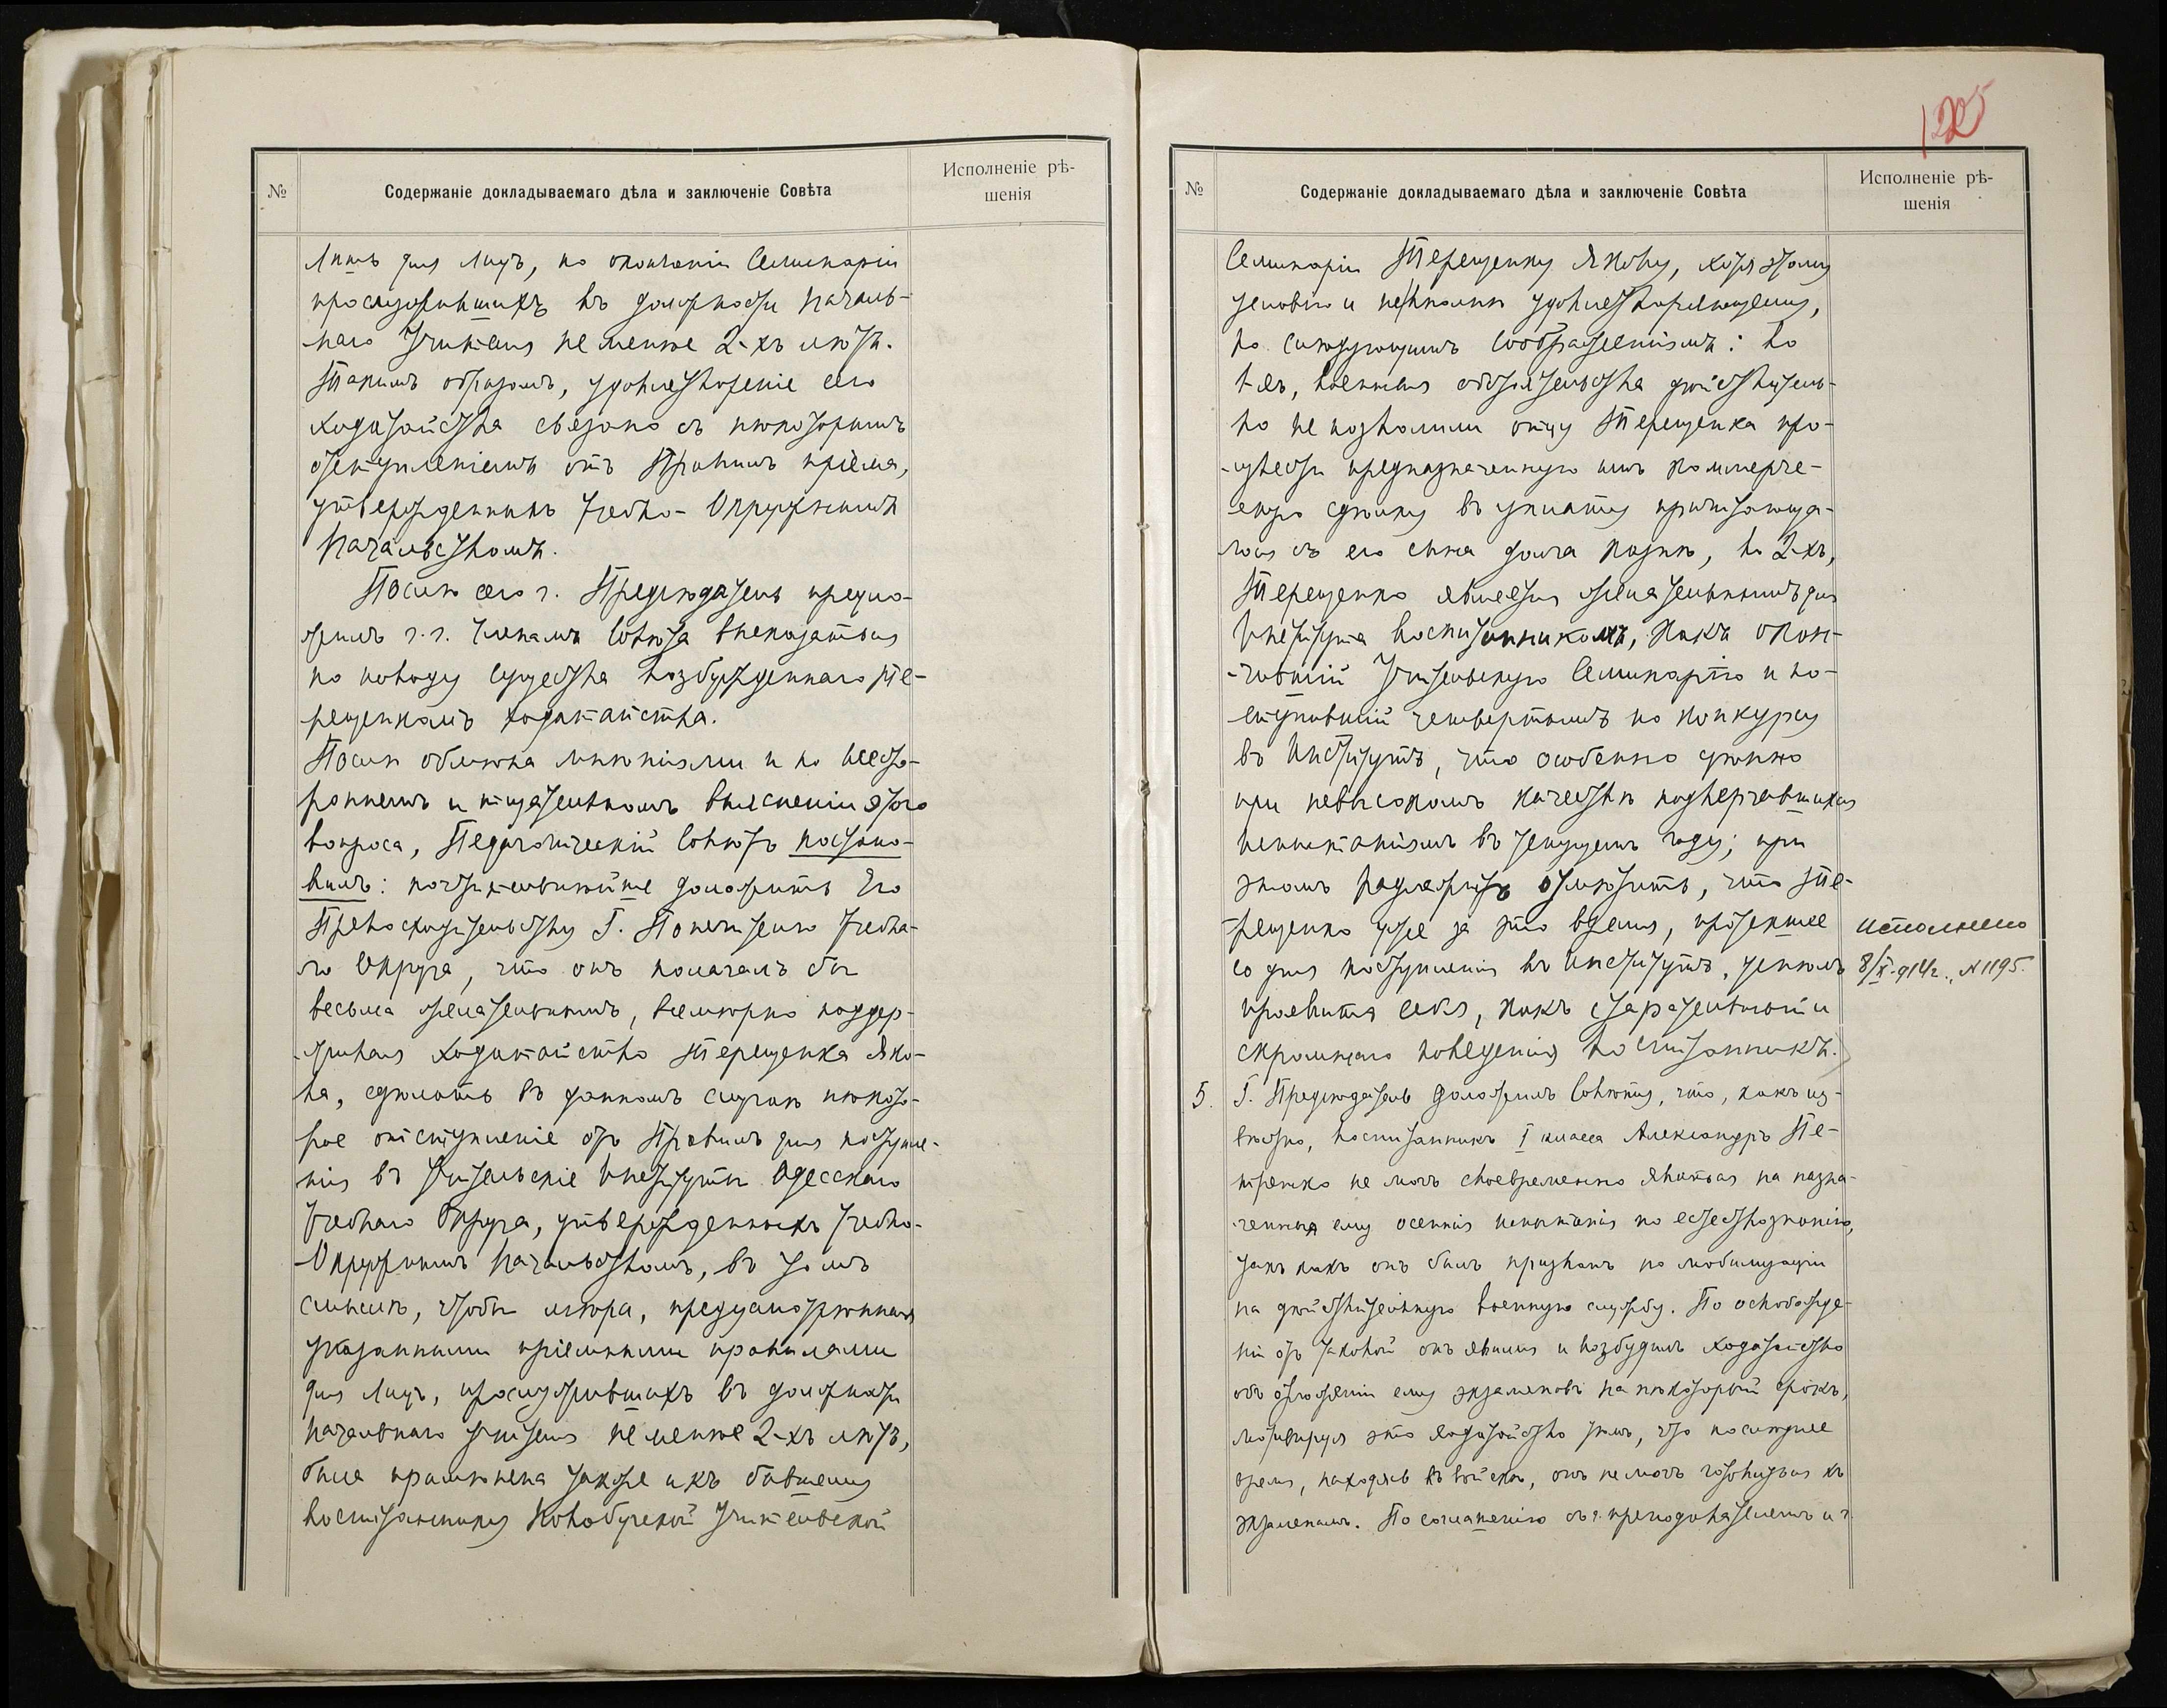 №
Содержаніе докладываемаго дѣла и заключеніе Совѣта
Исполненіе рѣ-
шенія
лишь для лицъ, по окончаніи Семинаріи
прослужившихъ въ должности началь-
наго Учителя не менѣе 2-хъ лѣтъ.
Такимъ образомъ, удовлетвореніе сего
ходатайства связано съ нѣкоторымъ
отступленіемъ отъ Правилъ пріема,
утвержденныхъ Учебно-Окружнымъ
Начальствомъ.
Послѣ сего г. Предсѣдатель предло-
жилъ г.г. Членамъ Совѣта высказаться
по поводу существа возбужденнаго Те-
рещенкомъ ходатайства.
Послѣ обмѣна мнѣніями и по всесто-
роннемъ и тщательномъ выясненіи этого
вопроса, Педагогическій Совѣтъ постано-
вилъ: почтительнѣйше доложить Его
Превосходительству Г. Попечителю Учебна-
го Округа, что онъ полагалъ бы
весьма желательнымъ, всемѣрно поддер-
живая ходатайство Терещенка Яко-
ва, сдѣлать въ данномъ случаѣ нѣкото-
рое отступленіе отъ Правилъ для поступле-
нія въ Учительскіе Институты Одесскаго
Учебнаго Округа, утвержденныхъ Учебно-
Окружнымъ Начальствомъ, въ томъ
смыслѣ, чтобы мѣра, предусмотрѣнная
указанными пріемными правилами
для лицъ, прослужившихъ въ должности
начальнаго учителя не менѣе 2-хъ лѣтъ,
была примѣнена также и къ бывшему
воспитаннику Новобугской Учительской
125
№
Содержаніе докладываемаго дѣла и заключеніе Совѣта
Исполненіе рѣ-
шенія
Семинаріи Терещенку Якову, хотя этому
условію и не вполнѣ удовлетворяющему,
по слѣдующимъ соображеніямъ: во
1-хъ, военныя обстоятельства дѣйствитель-
но не позволили отцу Терещенка про-
извести предназначенную имъ коммерче-
скую сдѣлку въ уплату причитающа-
гося съ его сына долга казнѣ, во 2-хъ,
Терещенко является желательнымъ для
Института воспитанникомъ, какъ окон-
чившій Учительскую Семинарію и по-
ступившій четвертымъ по конкурсу
въ Институтъ, что особенно цѣнно
при невысокомъ качествѣ подвергавшихся
испытаніямъ въ текущемъ году; при
этомъ надлежитъ отмѣтить, что Те-
рещенко уже за это время, протекшее
со дня поступленія въ Институтъ, успѣлъ
проявить себя, какъ старательный и
скромнаго поведенія воспитанникъ.
исполнено
8/X 914 г., №1195.
5. Г. Предсѣдатель доложилъ Совѣту, что, какъ из-
вѣстно, воспитанникъ I класса Александръ Пе-
тренко не могъ своевременно явиться на назна-
ченныя ему осеннія испытанія по естествознанію,
такъ какъ онъ былъ призванъ по мобилизаціи
на дѣйствительную военную службу. По освобожде-
ніи отъ таковой онъ явился и возбудилъ ходатайство
объ отложеніи ему экзаменовъ на нѣкоторый срокъ,
мотивируя это ходатайство тѣмъ, что послѣднее
время, находясь въ войскѣ, онъ не могъ готовиться къ
экзаменамъ. По соглашенію съ г. преподавателемъ и г.